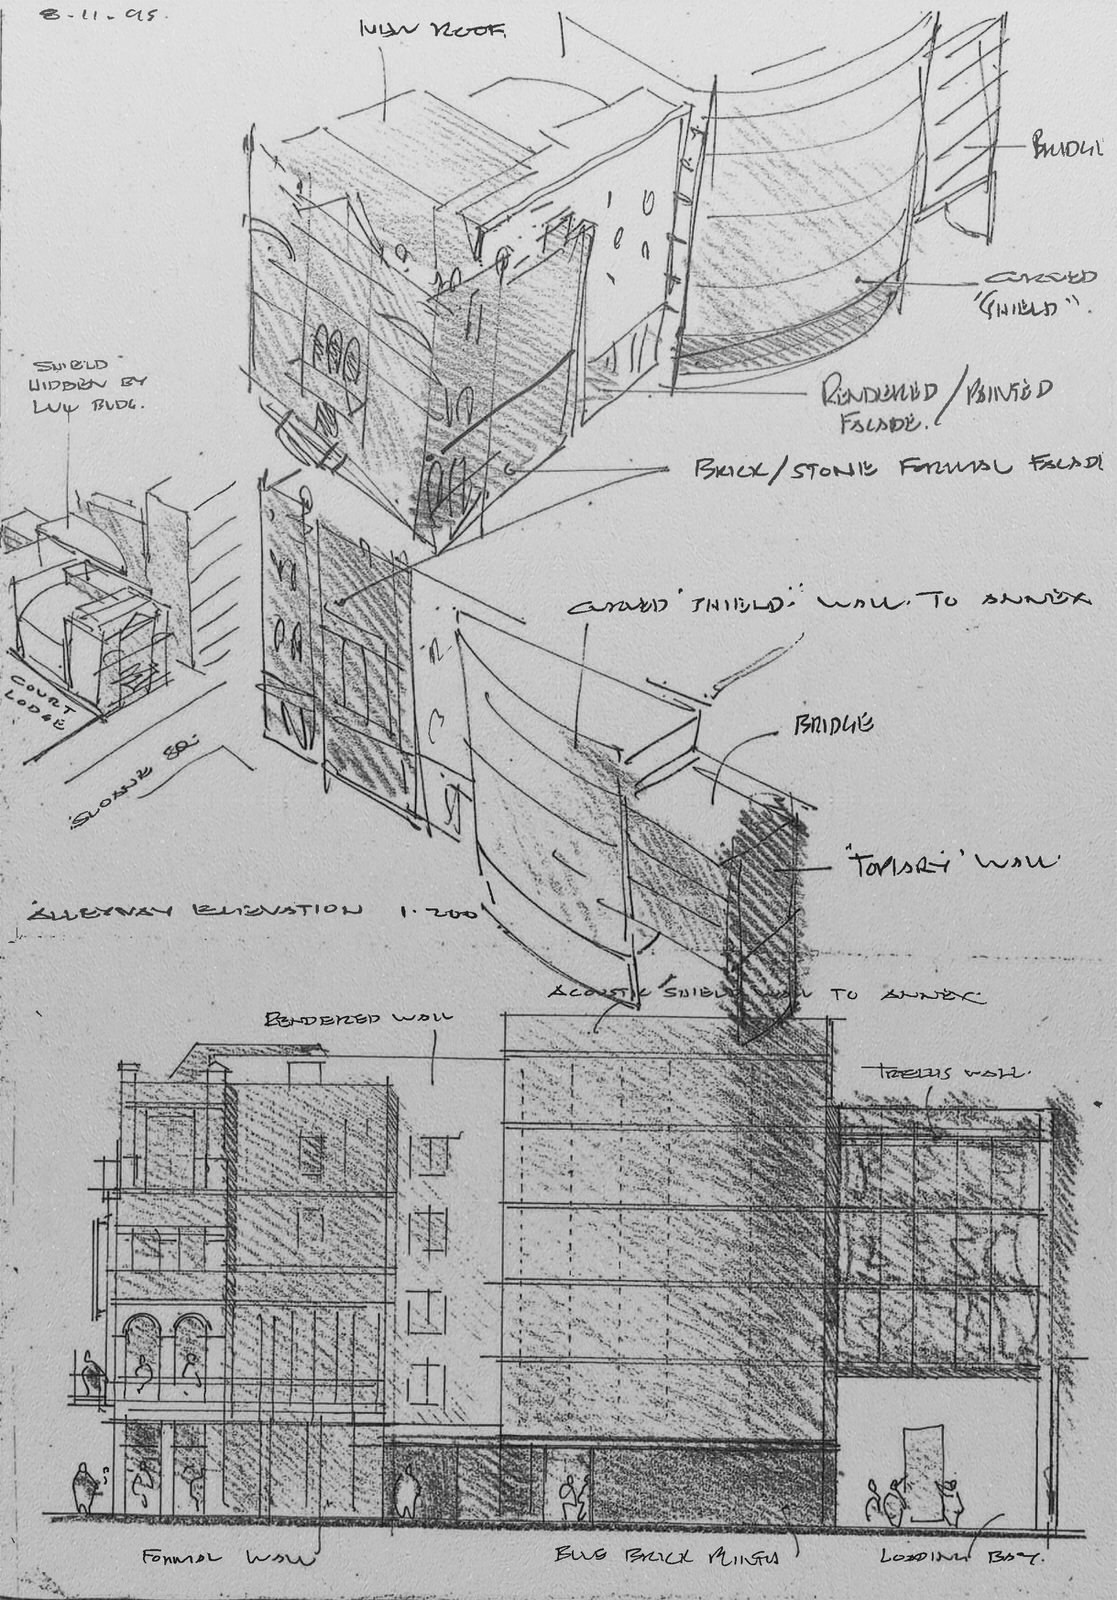 8-11-95.
NEW ROOF
BRIDGE
CURVED
"SHIELD".
RENDERED/PAINTED
FACADE.
BRICK/STONE FORMAL FACADE
"SHIELD"
HIDDEN BY
LUU BLDG.
CURVED 'SHIELD' WALL TO ANNEX
BRIDGE
COURT
LODGE
SLOANE SQ.
'TOPIARY' WALL
ALLEYWAY ELEVATION 1·200
ACOUSTIC SHIELD WALL TO ANNEX
RENDERED WALL
TRELLIS WALL.
FORMAL WALL
BLUE BRICK PLINTH
LOADING BAY.